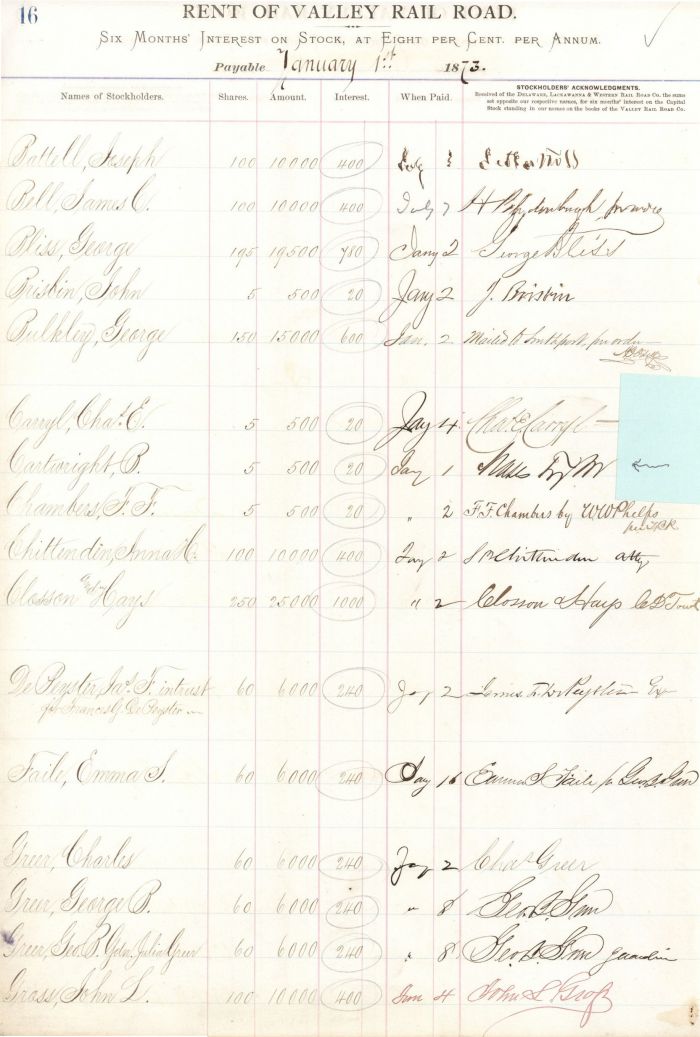 16
RENT OF VALLEY RAIL ROAD.
SIX MONTHS' INTEREST ON STOCK, AT EIGHT PER CENT. PER ANNUM.
Payable January 1st 1873.
Names of Stockholders. Shares. Amount. Interest. When Paid. STOCKHOLDERS' ACKNOWLEDGMENTS.
Received of the DELAWARE, LACKAWANNA & WESTERN RAIL ROAD CO. the sums
set opposite our respective names, for six months' interest on the Capital
Stock standing in our names on the books of the VALLEY RAIL ROAD CO.
Battell, Joseph 100 10000 400 July
Bell, James C. 100 10000 400 July 7
Bliss, George 195 19500 780 Jany 2 George Bliss
Brisbin, John 5 500 20 Jany 2 J. Brisbin
Bulkley, George 150 15000 600 Jan. 2 Mailed to Southport, per order
Carryl, Chas. E. 5 500 20 Jay 4 Chas E. Carryl
Cartwright, B. 5 500 20 Jay 1
Chambers, F. F. 5 500 20 " 2 F. F. Chambers by WWPhelps
Chittenden, Anna C. 100 10000 400 Jay 2 Chittenden atty
Closson & Hays 250 25000 1000 " 2 Closson & Hays
De Peyster, Jas. F. in trust 60 6000 240 Jay 2 James F. DePeyster Ex
for Frances G. De Peyster
Faile, Emma S. 60 6000 240 Jay 16 Emma S. Faile
Greer, Charles 60 6000 240 Jay 2 Chas Greer
Greer, George B. 60 6000 240 " 8 Geo. B. Greer
Greer, Geo. B. Gdn. Julia Greer 60 6000 240 " 8 Geo. B. Greer guardian
Gross, John L. 100 10000 400 Jan 4 John L Gross